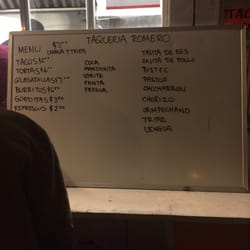 TAQUERIA ROMERO
MENU $3
LENGUA Y TRIPA
TACOS
TORTAS $6
QUESADILLAS
BURRITOS $6
GORDITAS $3
REFRESCOS $2
COCA
MANZANITA
SPRITE
FANTA
FRESCA
FAJITA DE RES
FAJITA DE POLLO
BISTEC
PASTOR
CHICHARRON
CHORIZO
CAMPECHANO
TRIPA
LENGUA